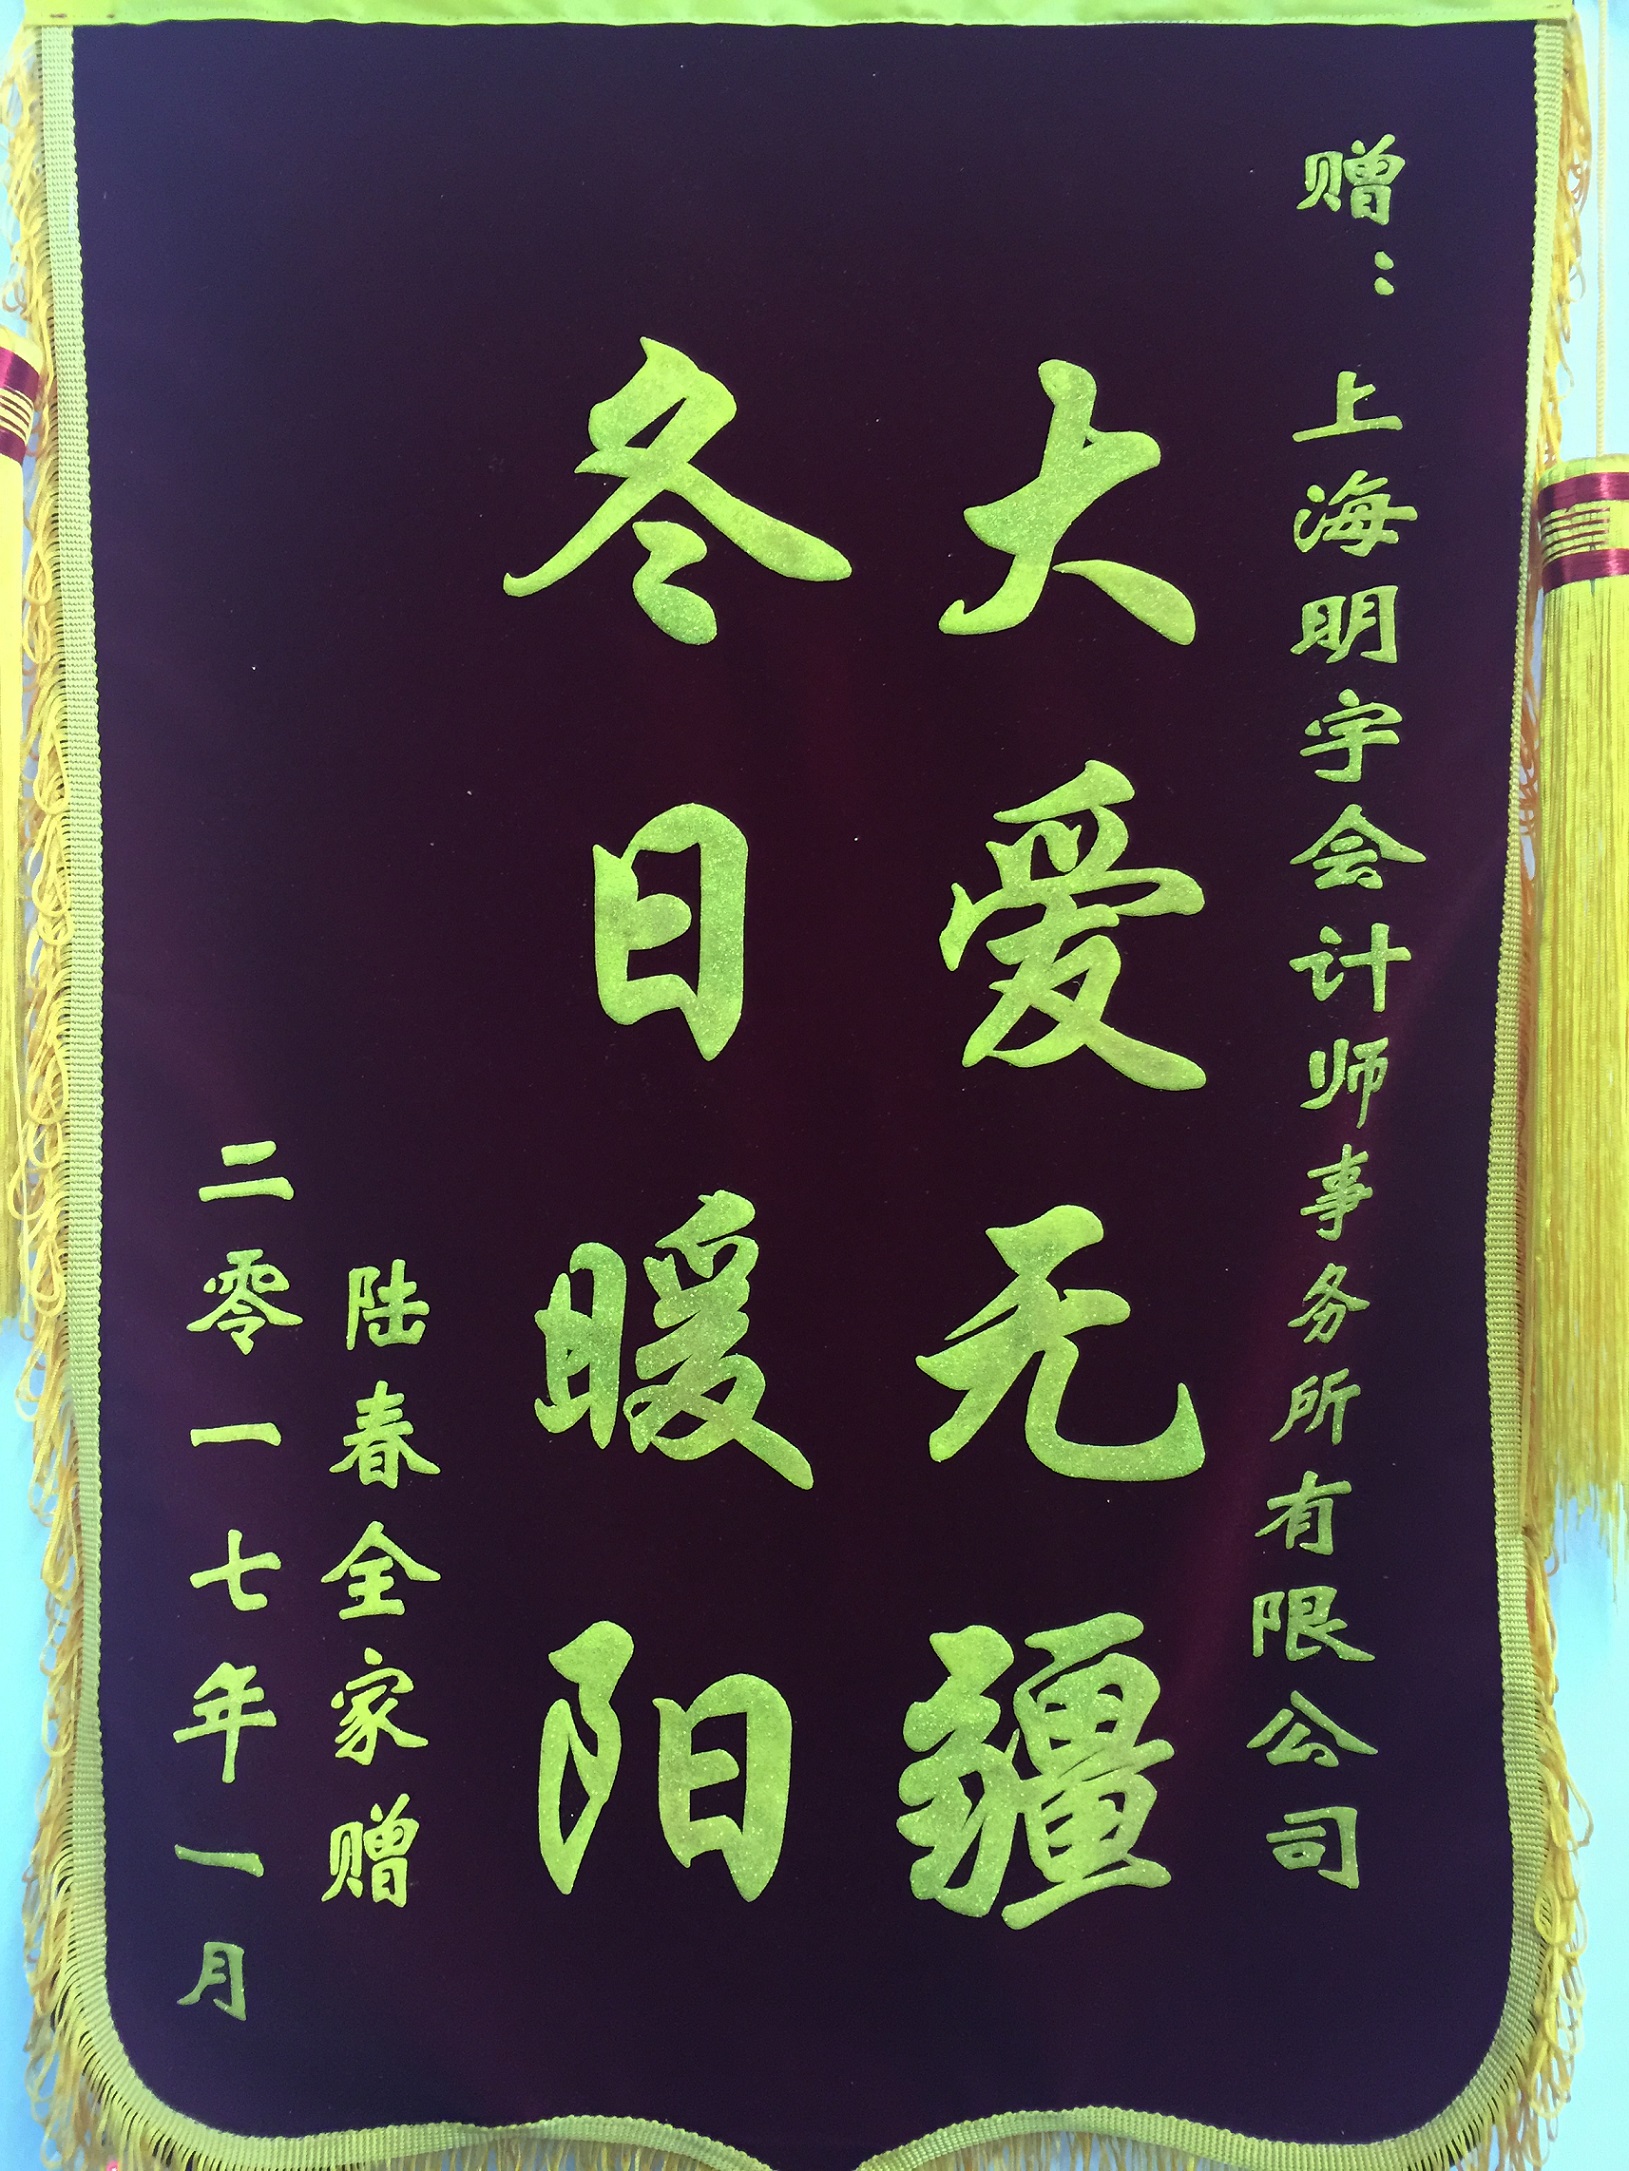 赠：上海明宇会计师事务所有限公司
大爱无疆
冬日暖阳
陆春全家赠
二零一七年一月